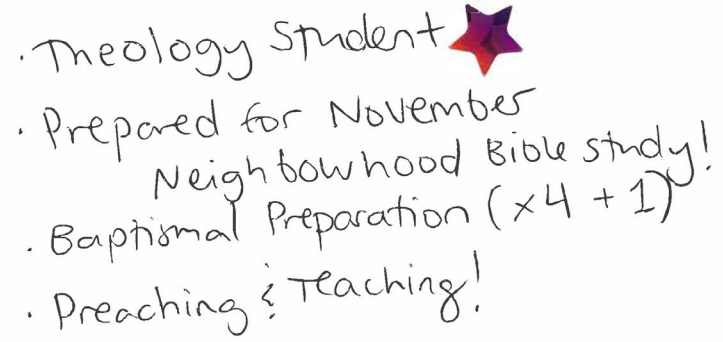 · Theology Student
· Prepared for November
Neighbourhood Bible study!
· Baptismal Preparation (x4 + 1)
· Preaching & Teaching!